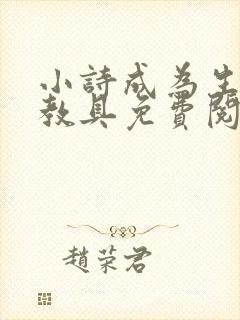 小詩成為生
教具免費閱
趙荣君